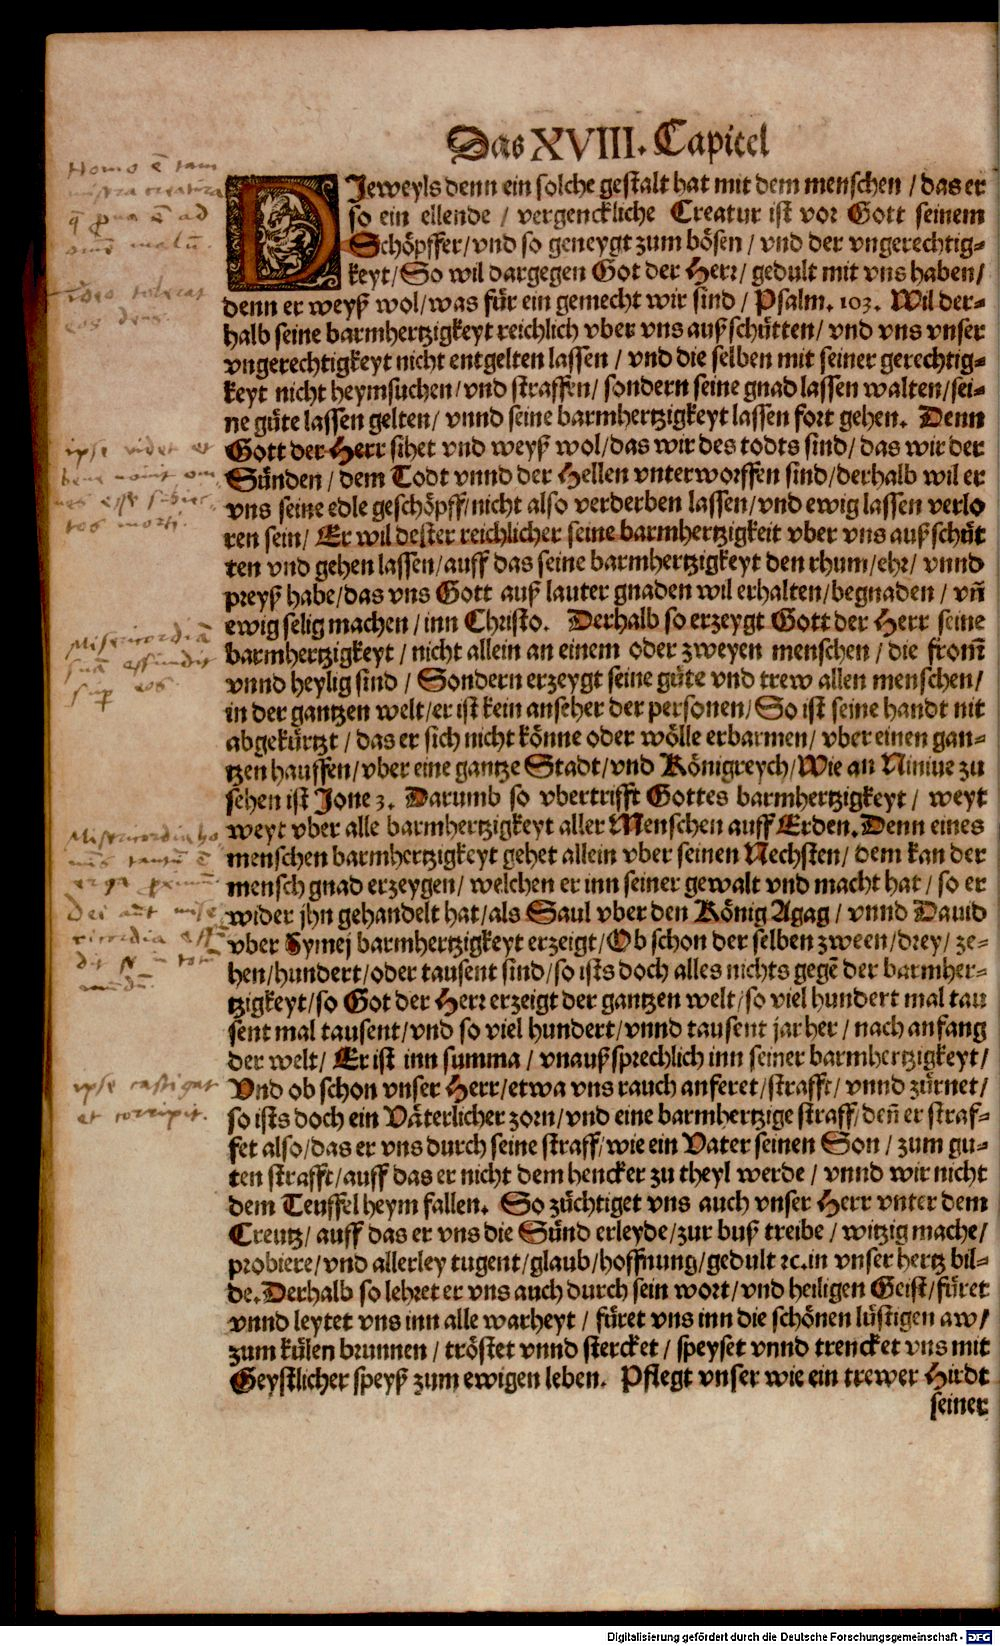 Das XVIII. Capitel
DIeweyls denn ein solche gestalt hat mit dem menschen / das er
so ein ellende / vergenckliche Creatur ist vor Gott seinem
Schöpffer/vnd so geneygt zum bösen / vnd der vngerechtig-
keyt/So wil dargegen Got der Herr/ gedult mit vns haben/
denn er weyß wol/was für ein gemecht wir sind / Psalm. 103. Wil der-
halb seine barmhertzigkeyt reichlich vber vns außschütten/ vnd vns vnser
vngerechtigkeyt nicht entgelten lassen / vnd die selben mit seiner gerechtig-
keyt nicht heymsuchen/vnd straffen/ sondern seine gnad lassen walten/sei-
ne güte lassen gelten/ vnnd seine barmhertzigkeyt lassen fort gehen. Denn
Gott der Herr sihet vnd weyß wol/das wir des todts sind/ das wir der
Sünden / dem Todt vnnd der Hellen vnterworffen sind/derhalb wil er
vns seine edle geschöpff/nicht also verderben lassen/vnd ewig lassen verlo
ren sein/ Er wil dester reichlicher seine barmhertzigkeit vber vns außschüt
ten vnd gehen lassen/auff das seine barmhertzigkeyt den rhum/ehr/ vnnd
preyß habe/das vns Gott auß lauter gnaden wil erhalten/begnaden / vñ
ewig selig machen / inn Christo. Derhalb so erzeygt Gott der Herr seine
barmhertzigkeyt / nicht allein an einem oder zweyen menschen / die from̃
vnnd heylig sind / Sondern erzeygt seine güte vnd trew allen menschen/
in der gantzen welt/er ist kein anseher der personen/So ist seine handt nit
abgekürtzt / das er sich nicht könne oder wölle erbarmen/ vber einen gan-
tzen hauffen/vber eine gantze Stadt/vnd Königreych/Wie an Niniue zu
sehen ist Jone 3. Darumb so vbertrifft Gottes barmhertzigkeyt / weyt
weyt vber alle barmhertzigkeyt aller Menschen auff Erden. Denn eines
menschen barmhertzigkeyt gehet allein vber seinen Nechsten/ dem kan der
mensch gnad erzeygen/ welchen er inn seiner gewalt vnd macht hat / so er
wider jhn gehandelt hat/als Saul vber den König Agag / vnnd Dauid
vber Symej barmhertzigkeyt erzeigt/Ob schon der selben zween/drey/ ze-
hen/hundert/oder tausent sind/so ists doch alles nichts gegē der barmher-
tzigkeyt/so Got der Herr erzeigt der gantzen welt/so viel hundert mal tau
sent mal tausent/vnd so viel hundert/vnnd tausent jar her / nach anfang
der welt/ Er ist inn summa / vnaußsprechlich inn seiner barmhertzigkeyt/
Vnd ob schon vnser Herr/etwa vns rauch anferet/strafft/ vnnd zürnet/
so ists doch ein Väterlicher zorn/vnd eine barmhertzige straff/deñ er straf-
fet also/das er vns durch seine straff/wie ein Vater seinen Son / zum gu-
ten strafft/auff das er nicht dem hencker zu theyl werde / vnnd wir nicht
dem Teuffel heym fallen. So züchtiget vns auch vnser Herr vnter dem
Creutz/ auff das er vns die Sünd erleyde/zur buß treibe / witzig mache/
probiere/vnd allerley tugent/glaub/hoffnung/gedult ꝛc.in vnser hertz bil-
de.Derhalb so lehret er vns auch durch sein wort/vnd heiligen Geist/füret
vnnd leytet vns inn alle warheyt / füret vns inn die schönen lüstigen aw/
zum külen brunnen / tröstet vnnd stercket / speyset vnnd trencket vns mit
Geystlicher speyß zum ewigen leben. Pflegt vnser wie ein trewer Hirdt
seiner
Homo ē tam
creatura
ad
malū.
tolerat
eos deus.
ipse videt et
bene novit om
nes esse subiec-
tos morti.
Misericordiā
suā effundit
sup eos.
Misericordia ho
tantū ē
erga proximū
Dei aūt mise
ricordia effū
dit totū
mūdū.
ipse castigat
et corripit.
Digitalisierung gefördert durch die Deutsche Forschungsgemeinschaft - DFG